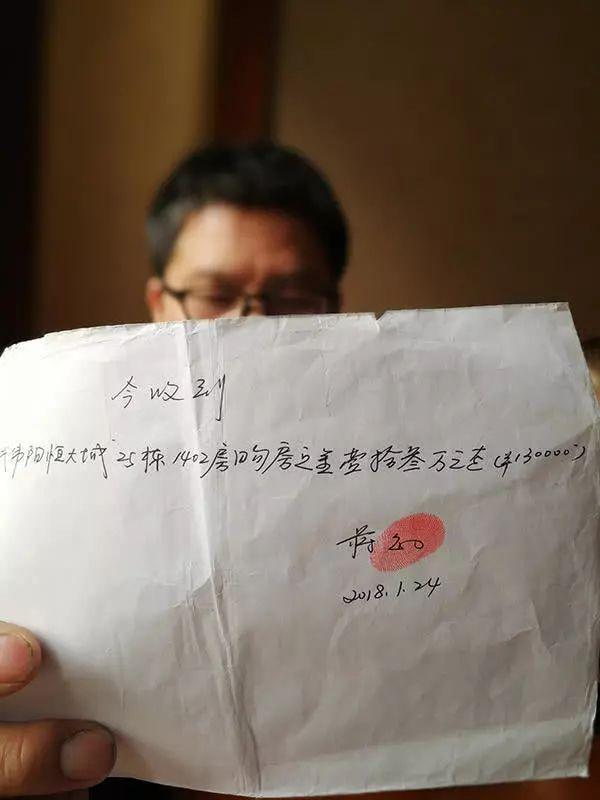 今收到
阳恒大城25栋1402房购房定金壹拾叁万元整(¥130000-)
蒋
2018.1.24